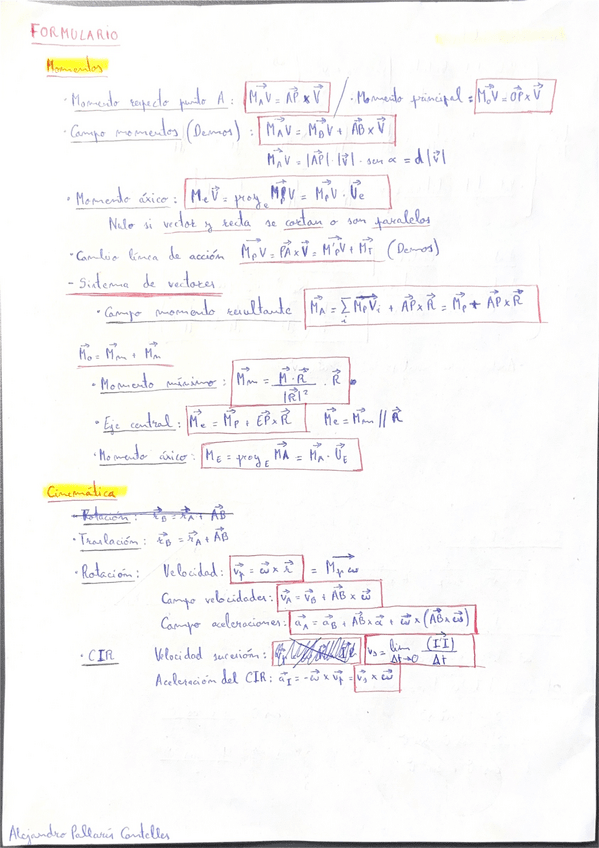 FORMULARIO
Momentos
· Momento respecto punto A: M⃗_A V = A⃗P x V⃗ / · Momento principal = M⃗_o V = O⃗P x V⃗
· Campo momentos (Demos): M⃗_A V = M⃗_B V + A⃗B x V⃗
M⃗_A V = |A⃗P| · |V⃗| · sen α = d |V⃗|
· Momento áxico: M_e V⃗ = proy_e M⃗_P V = M⃗_P V · U⃗_e
Nulo si vector y recta se cortan o son paralelos
· Cambio línea de acción M⃗_P V = P⃗A x V⃗ = M⃗'_P V + M⃗_T (Demos)
- Sistema de vectores
· Campo momento resultante M⃗_A = Σ_i M⃗_P V_i + A⃗P x R⃗ = M⃗_P + A⃗P x R⃗
M⃗_o = M⃗_m + M⃗_n
· Momento mínimo: M⃗_m = (M⃗ · R⃗ / |R⃗|²) · R⃗
· Eje central: M⃗_e = M⃗_P + E⃗P x R⃗ M⃗_e = M⃗_m // R⃗
· Momento áxico: M_E = proy_E M⃗A = M⃗_A · U⃗_E
Cinemática
· Rotación: r⃗_B = r⃗_A + A⃗B
· Traslación: r⃗_B = r⃗_A + A⃗B
· Rotación: Velocidad: v⃗_P = ω⃗ x r⃗ = M⃗_P ω
Campo velocidades: v⃗_A = v⃗_B + A⃗B x ω⃗
Campo aceleraciones: a⃗_A = a⃗_B + A⃗B x α⃗ + ω⃗ x (A⃗B x ω⃗)
· CIR Velocidad sucesión: v_s = lim Δt→0 (I⃗'I) / Δt
Aceleración del CIR: a⃗_I = -ω⃗ x v⃗_s = v⃗_s x ω⃗
Alejandro Pallarés Cantelles